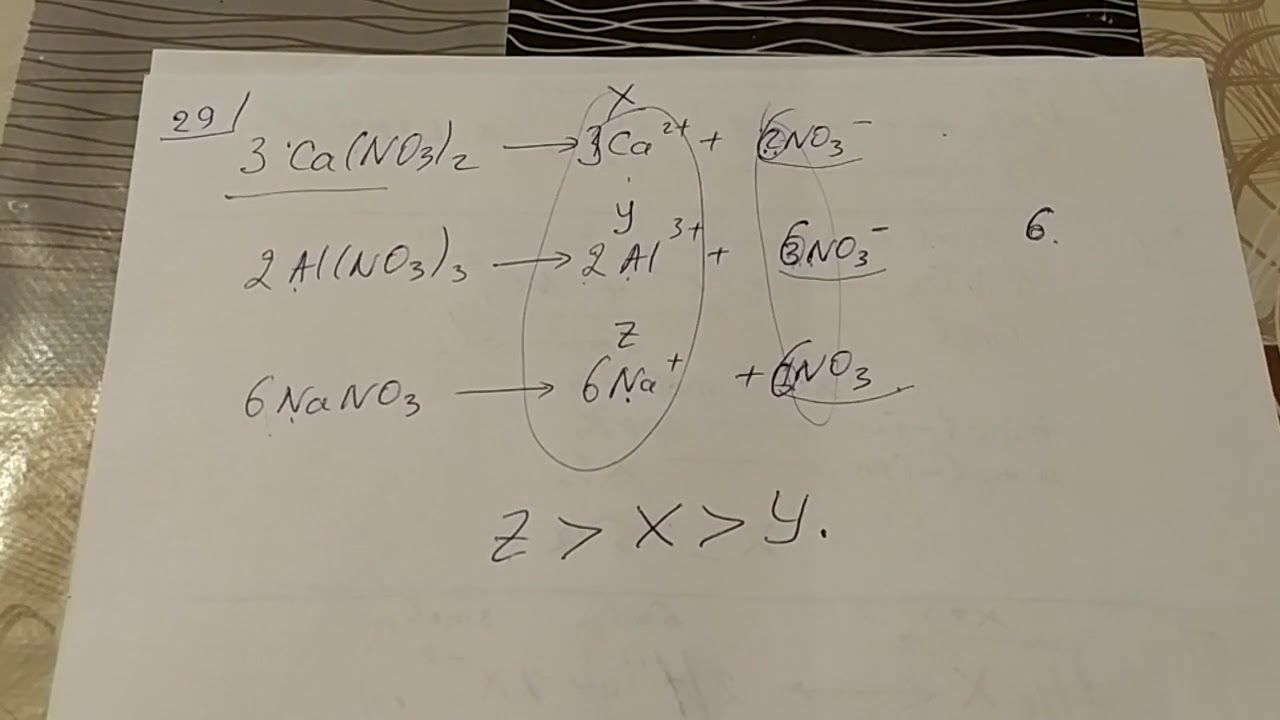 29/
3·Ca(NO3)2 → 3Ca²⁺ + 6NO3⁻
x
y
2Al(NO3)3 → 2Al³⁺ + 6NO3⁻
6.
z
6NaNO3 → 6Na⁺ + 6NO3
z > x > y.